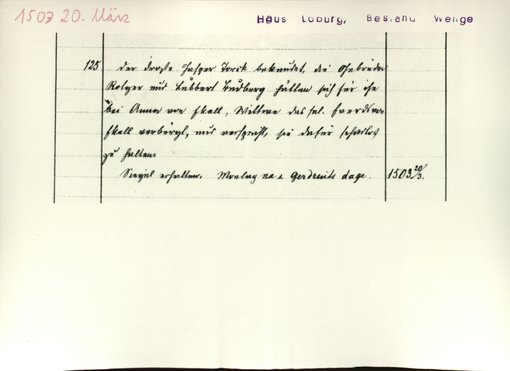 1503 20. März
Haus Loburg, Bestand Welge
125 Der Droste Jasper Torck bekundet, die Gebrüder
Rolger und Lubbert Budberg hätten sich für ihn
bei Anna von Hall, Wittwe des sel. Everdt von
Hall verbürgt, und verspricht, sie dafür schadlos
zu halten.
Siegel erhalten. Montag na s. Gerdruits dage. 1503 20/3.